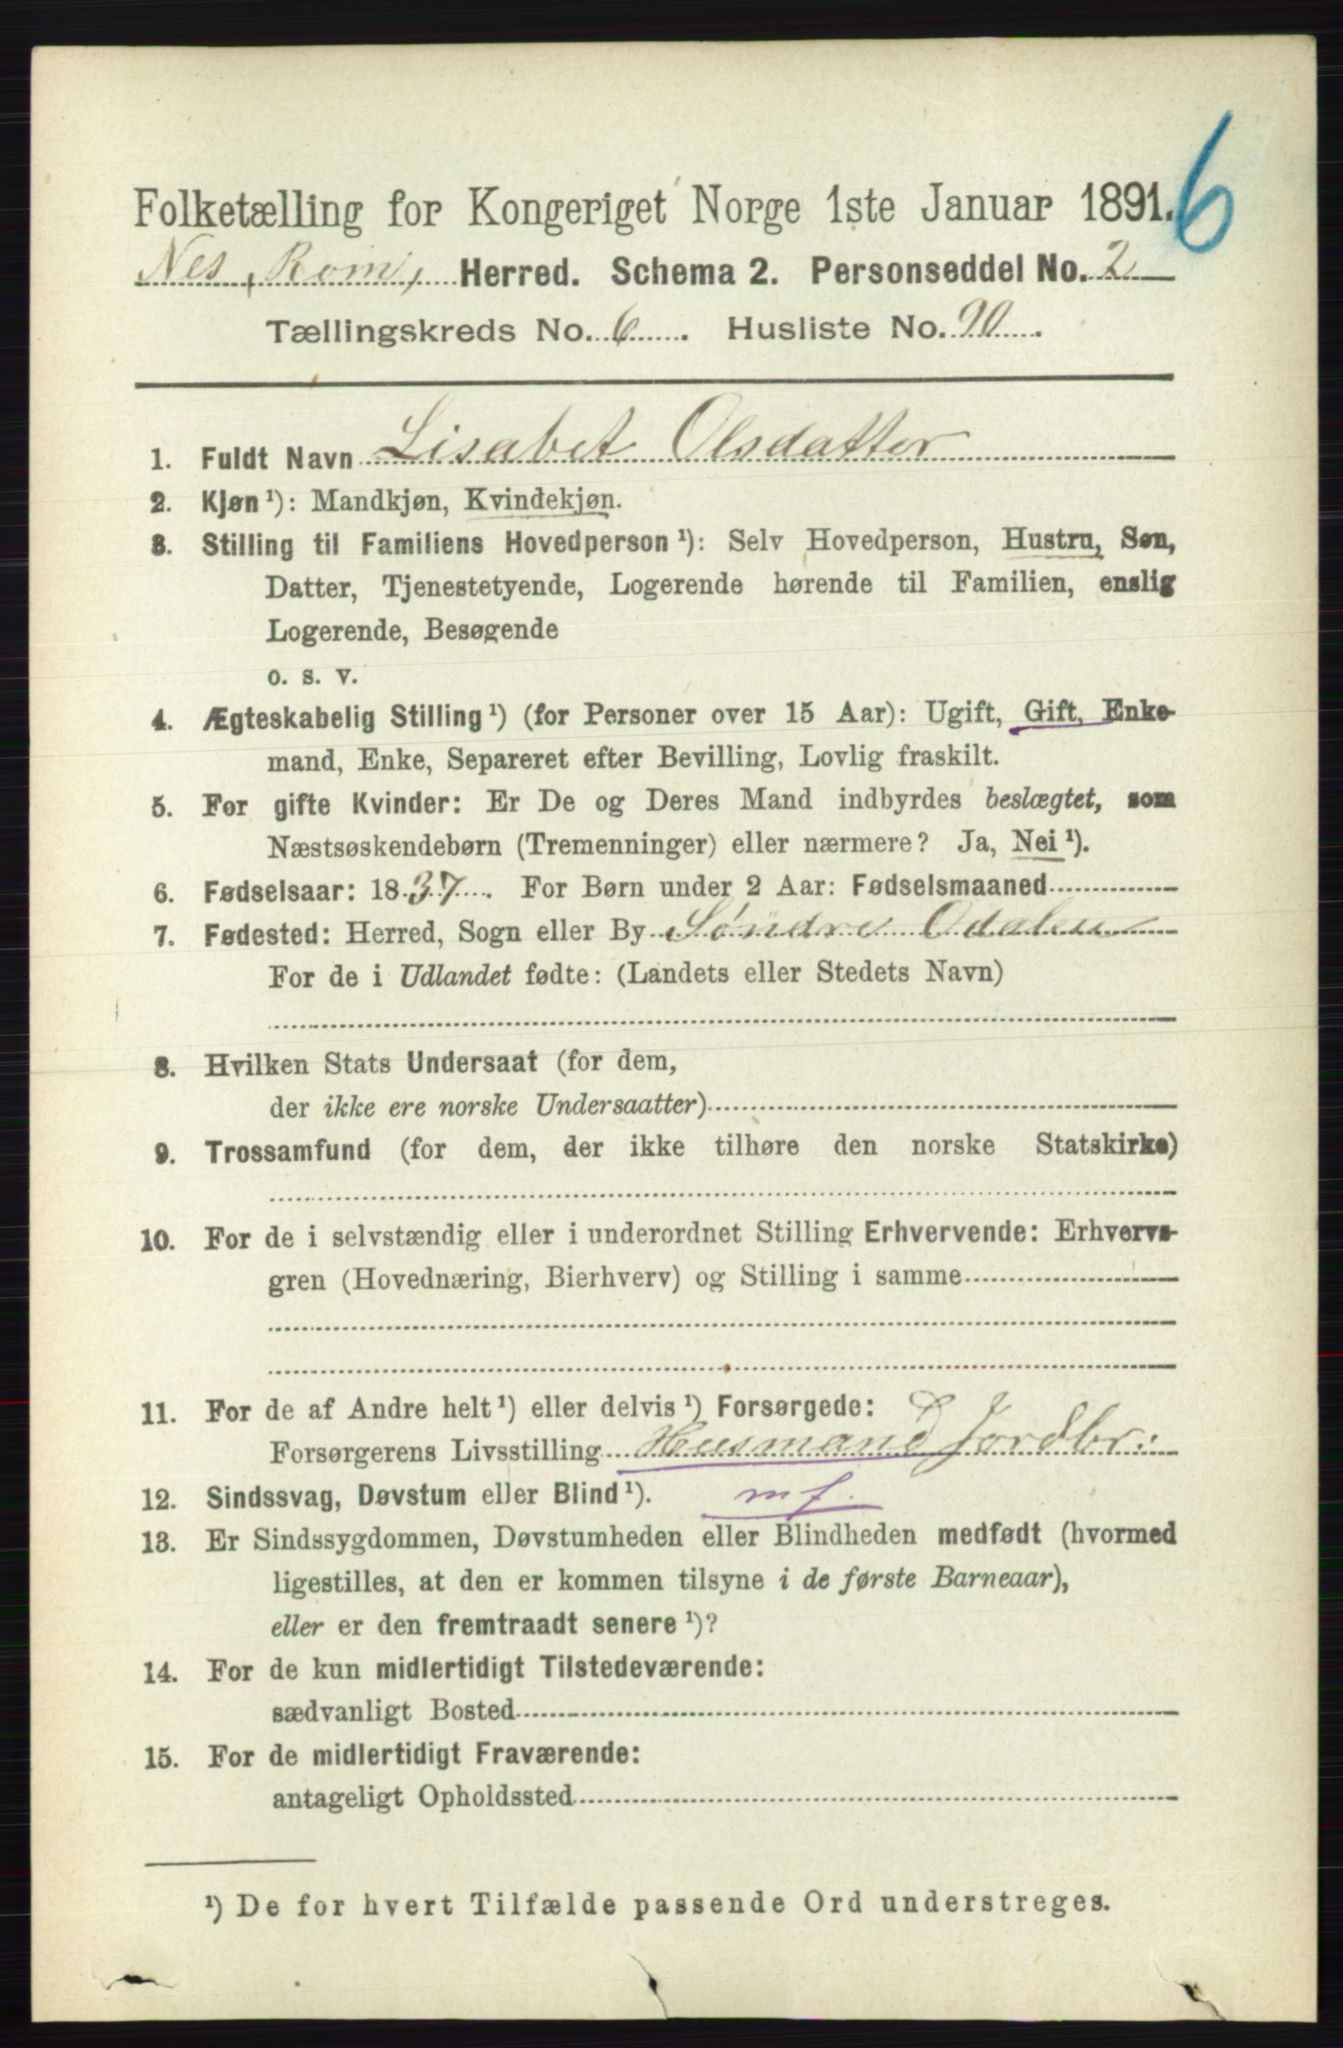 6
Folketælling for Kongeriget Norge 1ste Januar 1891.
Nes, Rom, Herred. Schema 2. Personseddel No. 2
Tællingskreds No. 6. Husliste No. 90.
1. Fuldt Navn Lisabet Olsdatter
2. Kjøn¹): Mandkjøn, Kvindekjøn.
3. Stilling til Familiens Hovedperson¹): Selv Hovedperson, Hustru, Søn,
Datter, Tjenestetyende, Logerende hørende til Familien, enslig
Logerende, Besøgende
o. s. v.
4. Ægteskabelig Stilling¹) (for Personer over 15 Aar): Ugift, Gift, Enke-
mand, Enke, Separeret efter Bevilling, Lovlig fraskilt.
5. For gifte Kvinder: Er De og Deres Mand indbyrdes beslægtet, som
Næstsøskendebørn (Tremenninger) eller nærmere? Ja, Nei¹).
6. Fødselsaar: 1837. For Børn under 2 Aar: Fødselsmaaned
7. Fødested: Herred, Sogn eller By Søndre Odalen
For de i Udlandet fødte: (Landets eller Stedets Navn)
8. Hvilken Stats Undersaat (for dem,
der ikke ere norske Undersaatter)
9. Trossamfund (for dem, der ikke tilhøre den norske Statskirke)
10. For de i selvstændig eller i underordnet Stilling Erhvervende: Erhvervs-
gren (Hovednæring, Bierhverv) og Stilling i samme
11. For de af Andre helt¹) eller delvis¹) Forsørgede:
Forsørgerens Livsstilling Husmand Jordbr:
12. Sindssvag, Døvstum eller Blind¹). mf.
13. Er Sindssygdommen, Døvstumheden eller Blindheden medfødt (hvormed
ligestilles, at den er kommen tilsyne i de første Barneaar),
eller er den fremtraadt senere¹)?
14. For de kun midlertidigt Tilstedeværende:
sædvanligt Bosted
15. For de midlertidigt Fraværende:
antageligt Opholdssted
¹) De for hvert Tilfælde passende Ord understreges.